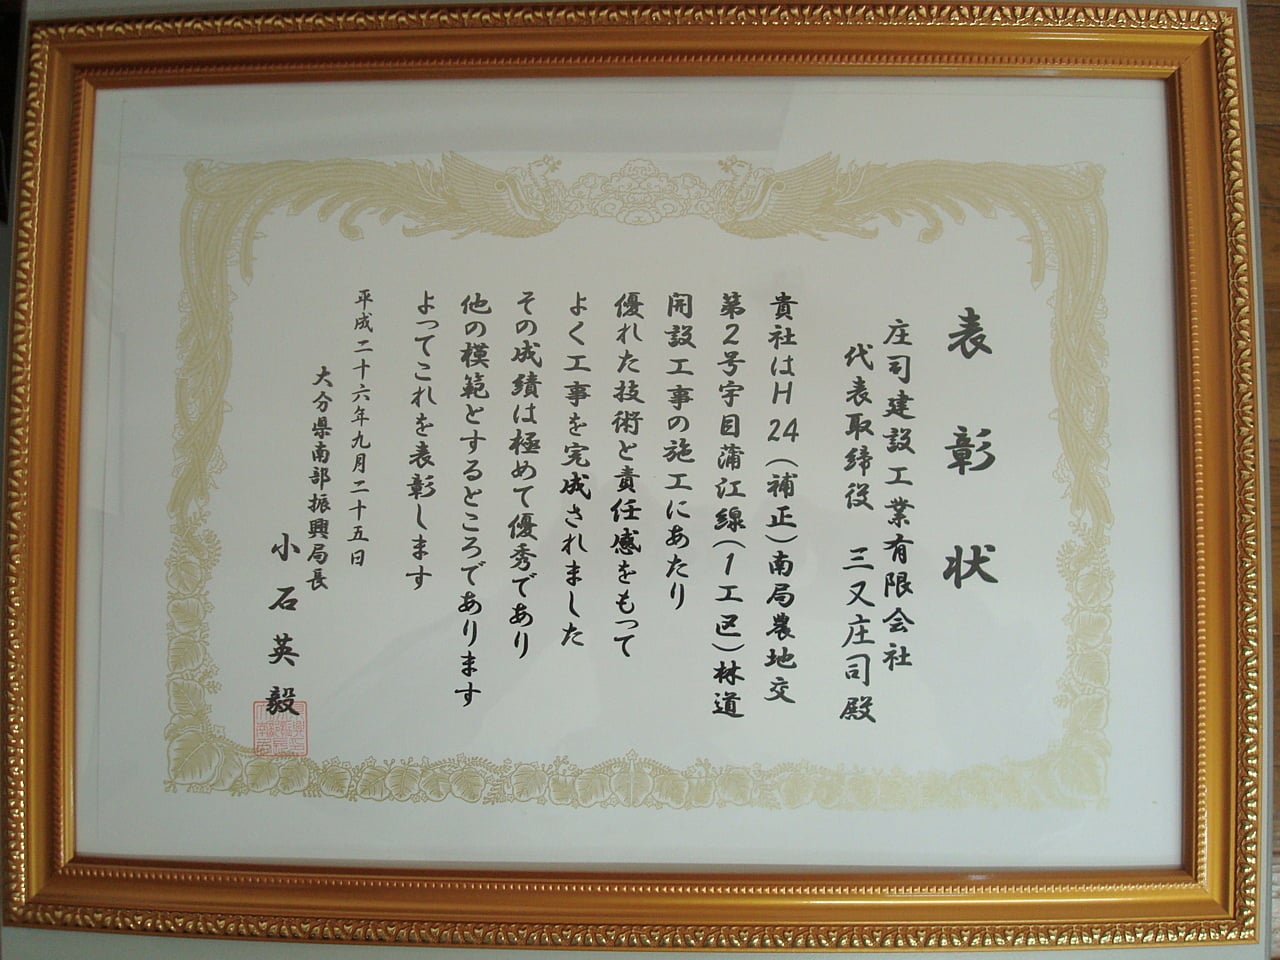 表彰状
庄司建設工業有限会社
代表取締役 三又庄司殿
貴社はH24(補正)南局農地交
第2号宇目蒲江線(1工区)林道
開設工事の施工にあたり
優れた技術と責任感をもって
よく工事を完成されました
その成績は極めて優秀であり
他の模範とするところであります
よってこれを表彰します
平成二十六年九月二十五日
大分県南部振興局長
小石英毅